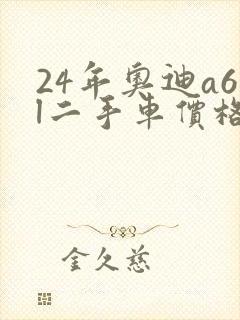 24年奧迪a6
l二手車價格
金久慈